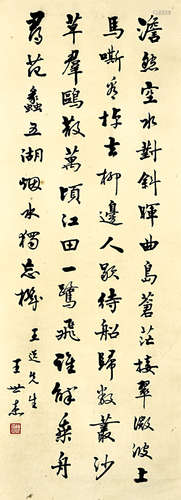 澹然空水對斜暉曲島蒼茫接翠微波上
馬嘶看棹去柳邊人歇待船歸數叢沙
草羣鷗散萬頃江田一鷺飛誰解乘舟
尋范蠡五湖烟水獨忘機 先生
王世杰